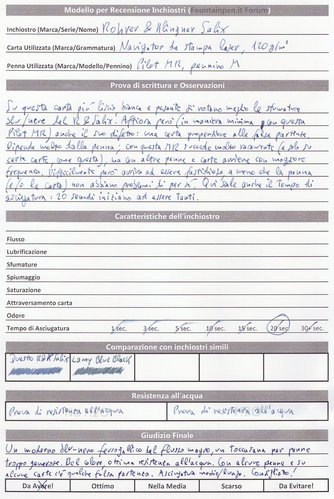 Modello per Recensione Inchiostri (Fountainpen.it Forum)
Inchiostro (Marca/Serie/Nome) Rohrer & Klingner Salix
Carta Utilizzata (Marca/Grammatura) Navigator da stampa laser, 120 g/m²
Penna Utilizzata (Marca/Modello/Pennino) Pilot MR, pennino M
Prova di scrittura e Osservazioni
Su questa carta più liscia bianca e pesante si notano meglio le sfumature
blu/nere del R&K Salix! Affiora però (in maniera minima con questa
Pilot MR) anche il suo difetto: una certa propensione alle false partenze
Dipende molto dalla penna; con questa MR succede molto raramente (e solo su
certe carte, come questa), ma con altre penne e carte avviene con maggiore
frequenza. Difficilmente però arriva ad essere fastidioso a meno che la penna
(e/o la carta) non abbiano problemi di per sé. Qui sale anche il tempo di
asciugatura: 20 secondi iniziano ad essere tanti.
Caratteristiche dell'inchiostro
Flusso
Lubrificazione
Sfumature
Spiumaggio
Saturazione
Attraversamento carta
Odore
Tempo di Asciugatura 1 sec. 3 sec. 5 sec. 10 sec. 15 sec. 20 sec. 30 sec.
Comparazione con inchiostri simili
Questo R&K Salix Lamy Blue Black
Resistenza all'acqua
Prova di resistenza all'acqua Prova di resistenza all'acqua
Giudizio Finale
Un moderno blu-nero ferrogallico dal flusso magro, un toccasana per penne
troppo generose. Bel colore ottima resistenza all'acqua. Con alcune penne e su
alcune carte c'è qualche falsa partenza. Asciugatura media/lunga. Consigliato!
Da Avere! Ottimo Nella Media Scarso Da Evitare!